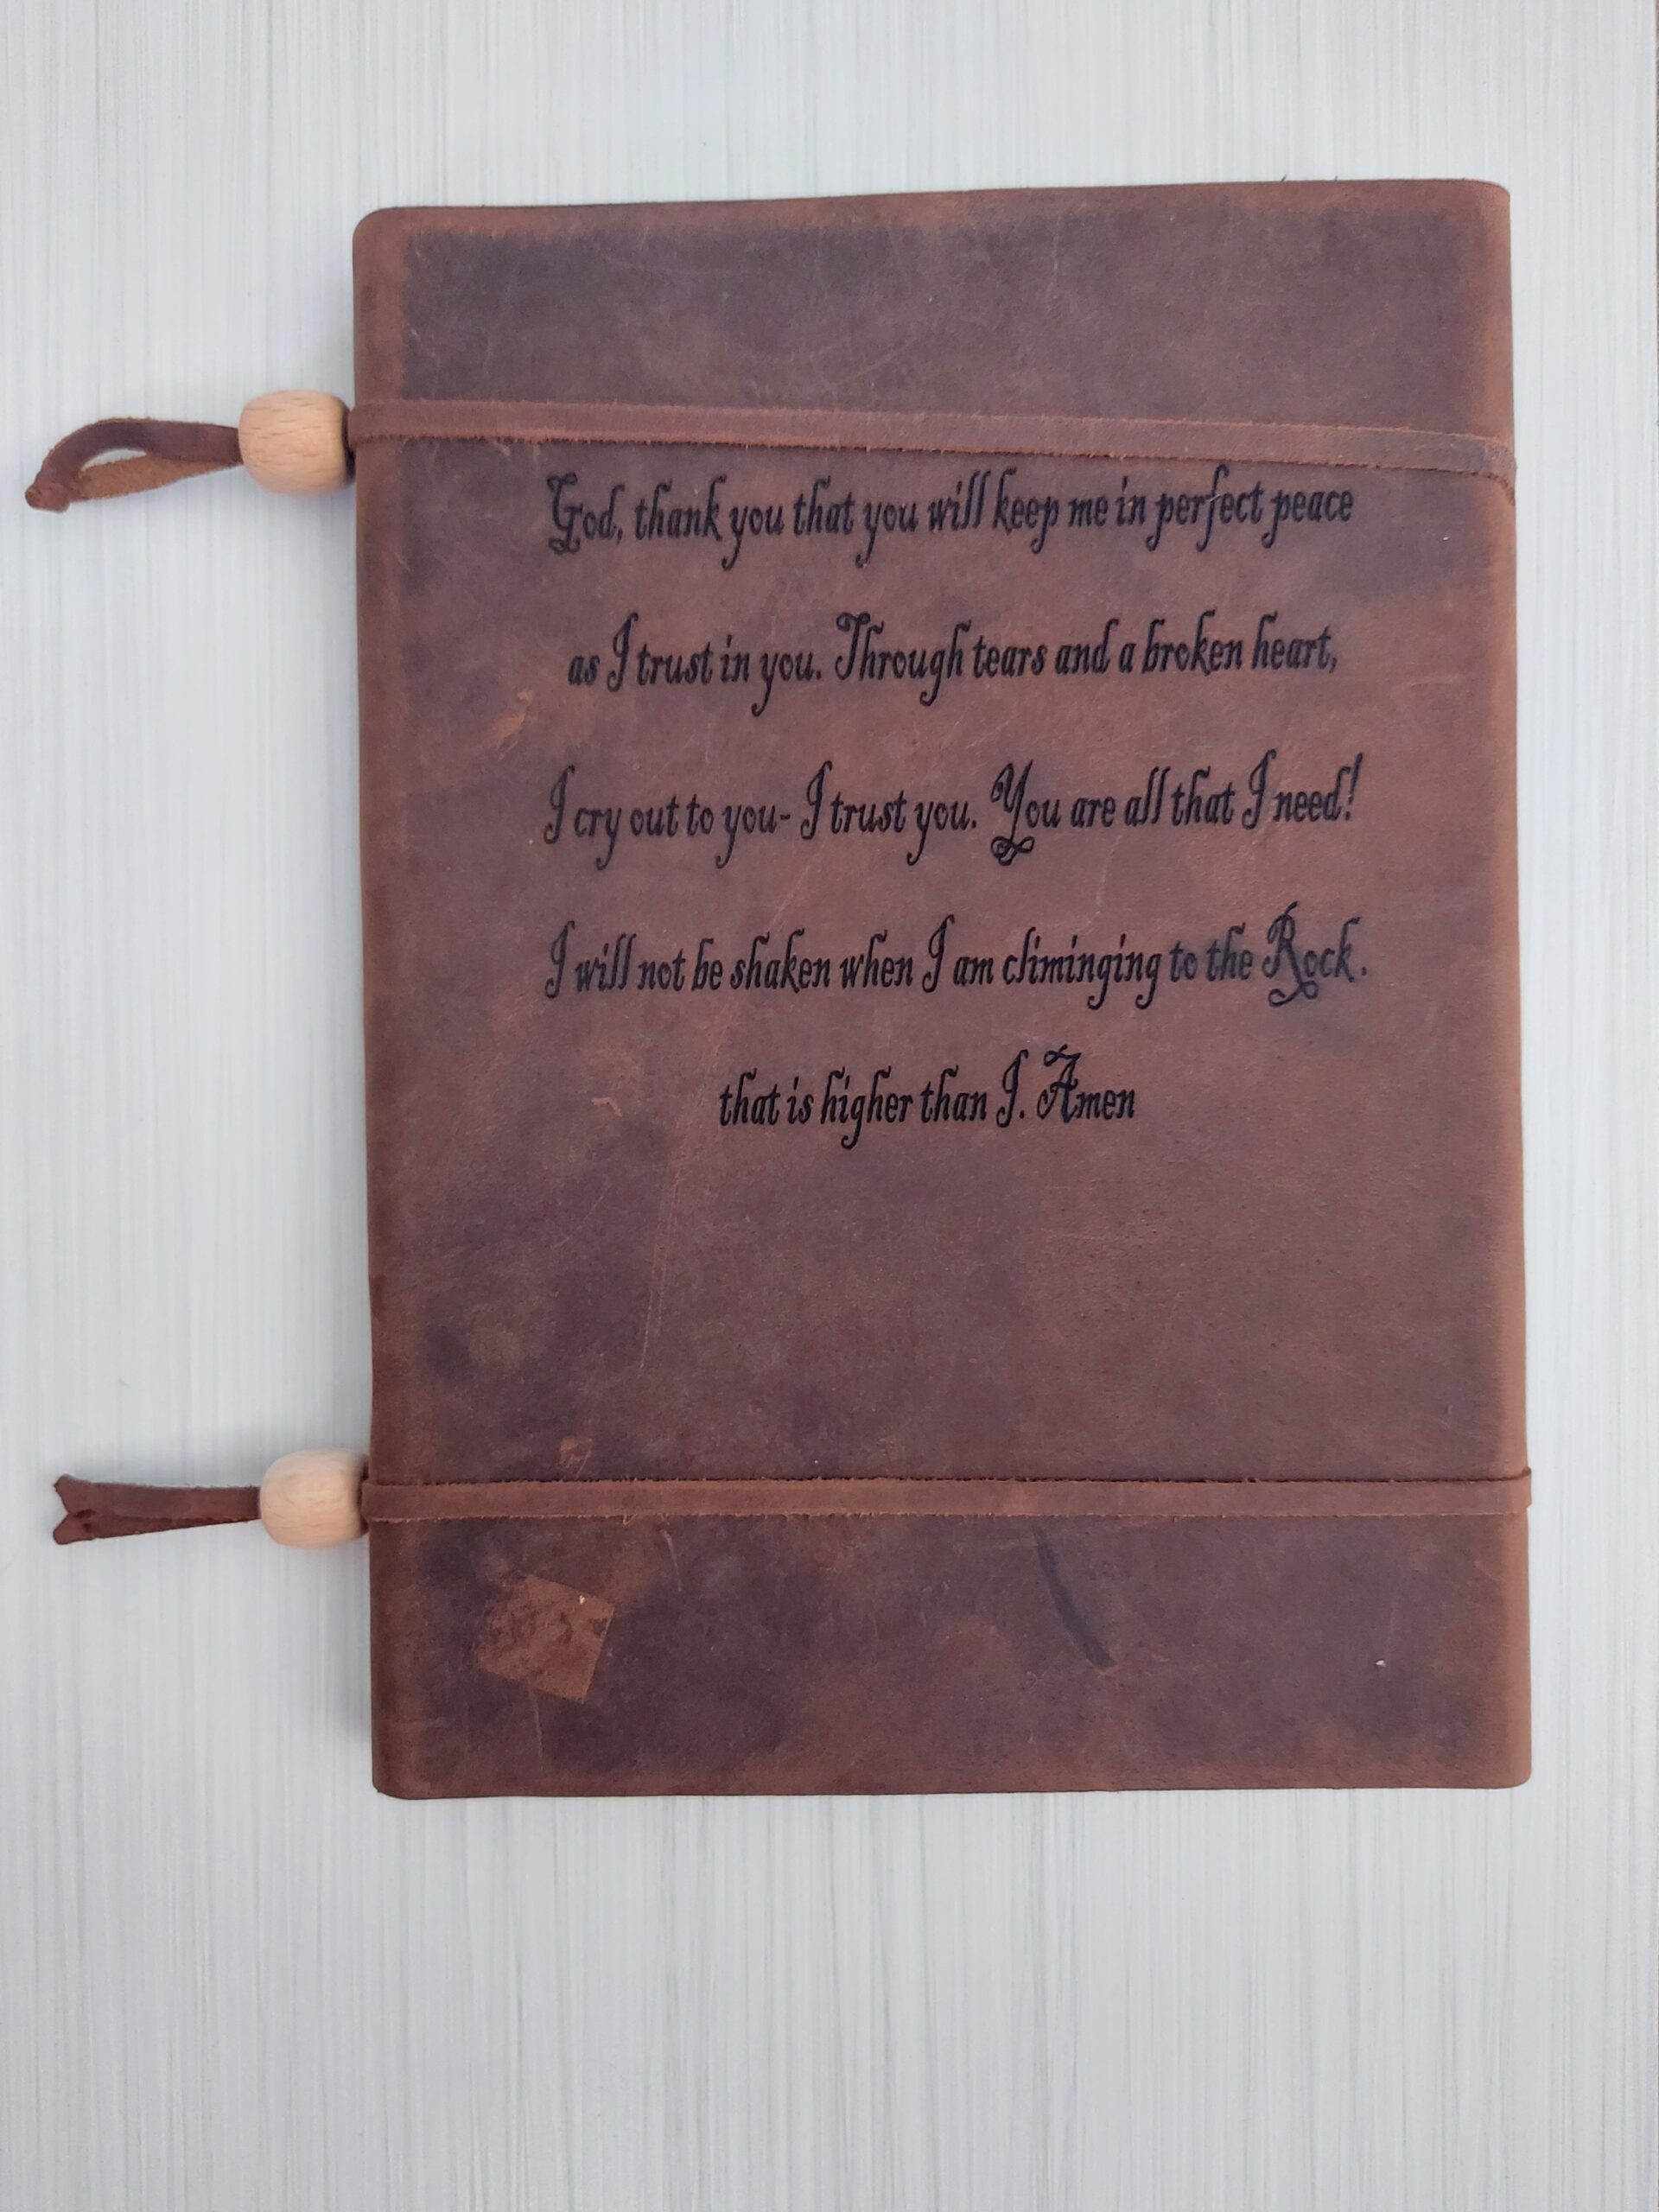 God, thank you that you will keep me in perfect peace
as I trust in you. Through tears and a broken heart,
I cry out to you- I trust you. You are all that I need!
I will not be shaken when I am climinging to the Rock.
that is higher than I. Amen